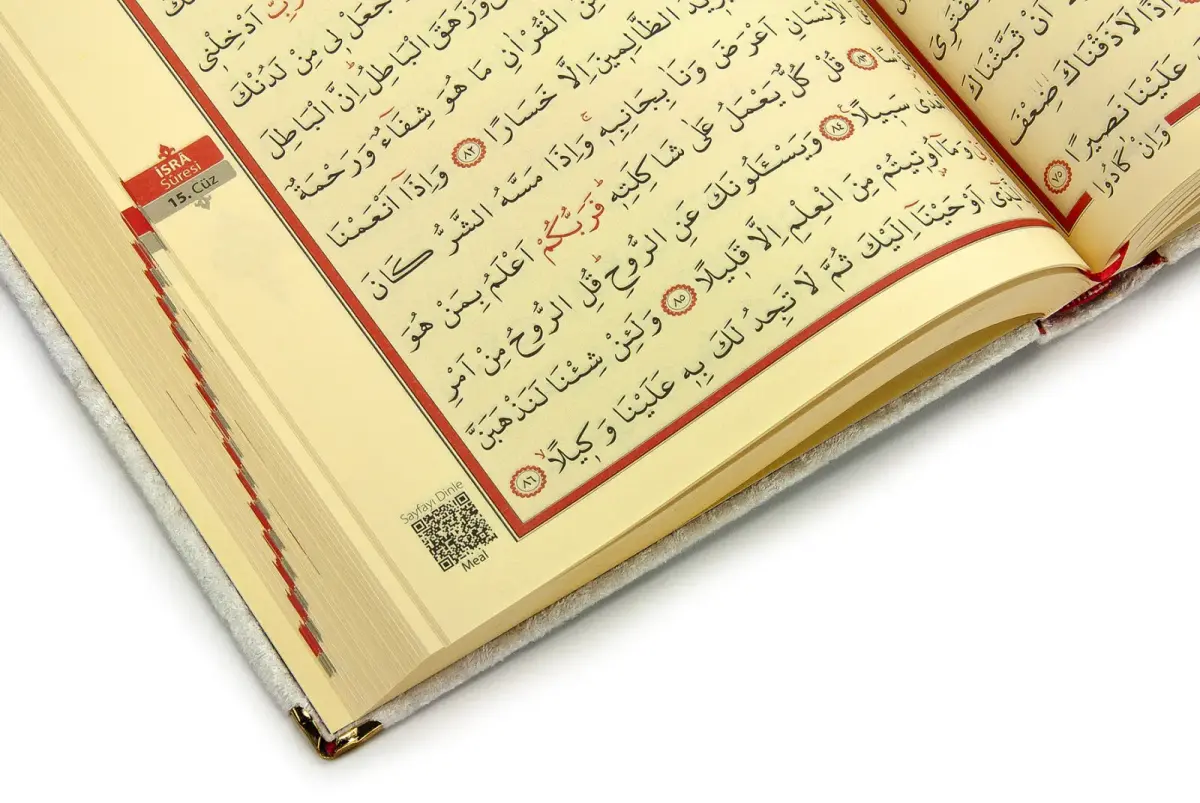 اَنْ ثَبَّتْنَاكَ
اِذًا لَاَذَقْنَاكَ ضِعْفَ
عَلَيْنَا نَصٖيرًا ٧٥
وَاِنْ كَادُوا
رَبِّ اَدْخِلْنٖى
لٖى مِنْ لَدُنْكَ
وَزَهَقَ الْبَاطِلُ اِنَّ الْبَاطِلَ
الْقُرْاٰنِ مَا هُوَ شِفَٓاءٌ وَرَحْمَةٌ
الظَّالِمٖينَ اِلَّا خَسَارًا ٨٢ وَاِذَٓا اَنْعَمْنَا
الْاِنْسَانِ اَعْرَضَ وَنَاٰ بِجَانِبِهٖ وَاِذَا مَسَّهُ الشَّرُّ كَانَ
٨٣ قُلْ كُلٌّ يَعْمَلُ عَلٰى شَاكِلَتِهٖ فَرَبُّكُمْ اَعْلَمُ بِمَنْ هُوَ
سَبٖيلًا ٨٤ وَيَسْـَٔلُونَكَ عَنِ الرُّوحِ قُلِ الرُّوحُ مِنْ اَمْرِ
وَمَٓا اُو۫تٖيتُمْ مِنَ الْعِلْمِ اِلَّا قَلٖيلًا ٨٥ وَلَئِنْ شِئْنَا لَنَذْهَبَنَّ
اَوْحَيْنَٓا اِلَيْكَ ثُمَّ لَا تَجِدُ لَكَ بِهٖ عَلَيْنَا وَكٖيلًا ٨٦
İSRA
Sûresi
15. Cüz
Sayfayı Dinle
Meal